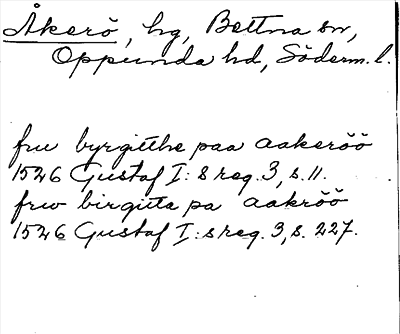 Åkerö, hg, Bettna sn,
Oppunda hd, Söderm. l.
fru byrgitthe paa aakeröö
1526 Gustaf I:s reg. 3, s. 11.
frw birgitta pa aakröö
1526 Gustaf I:s reg. 3, s. 227.